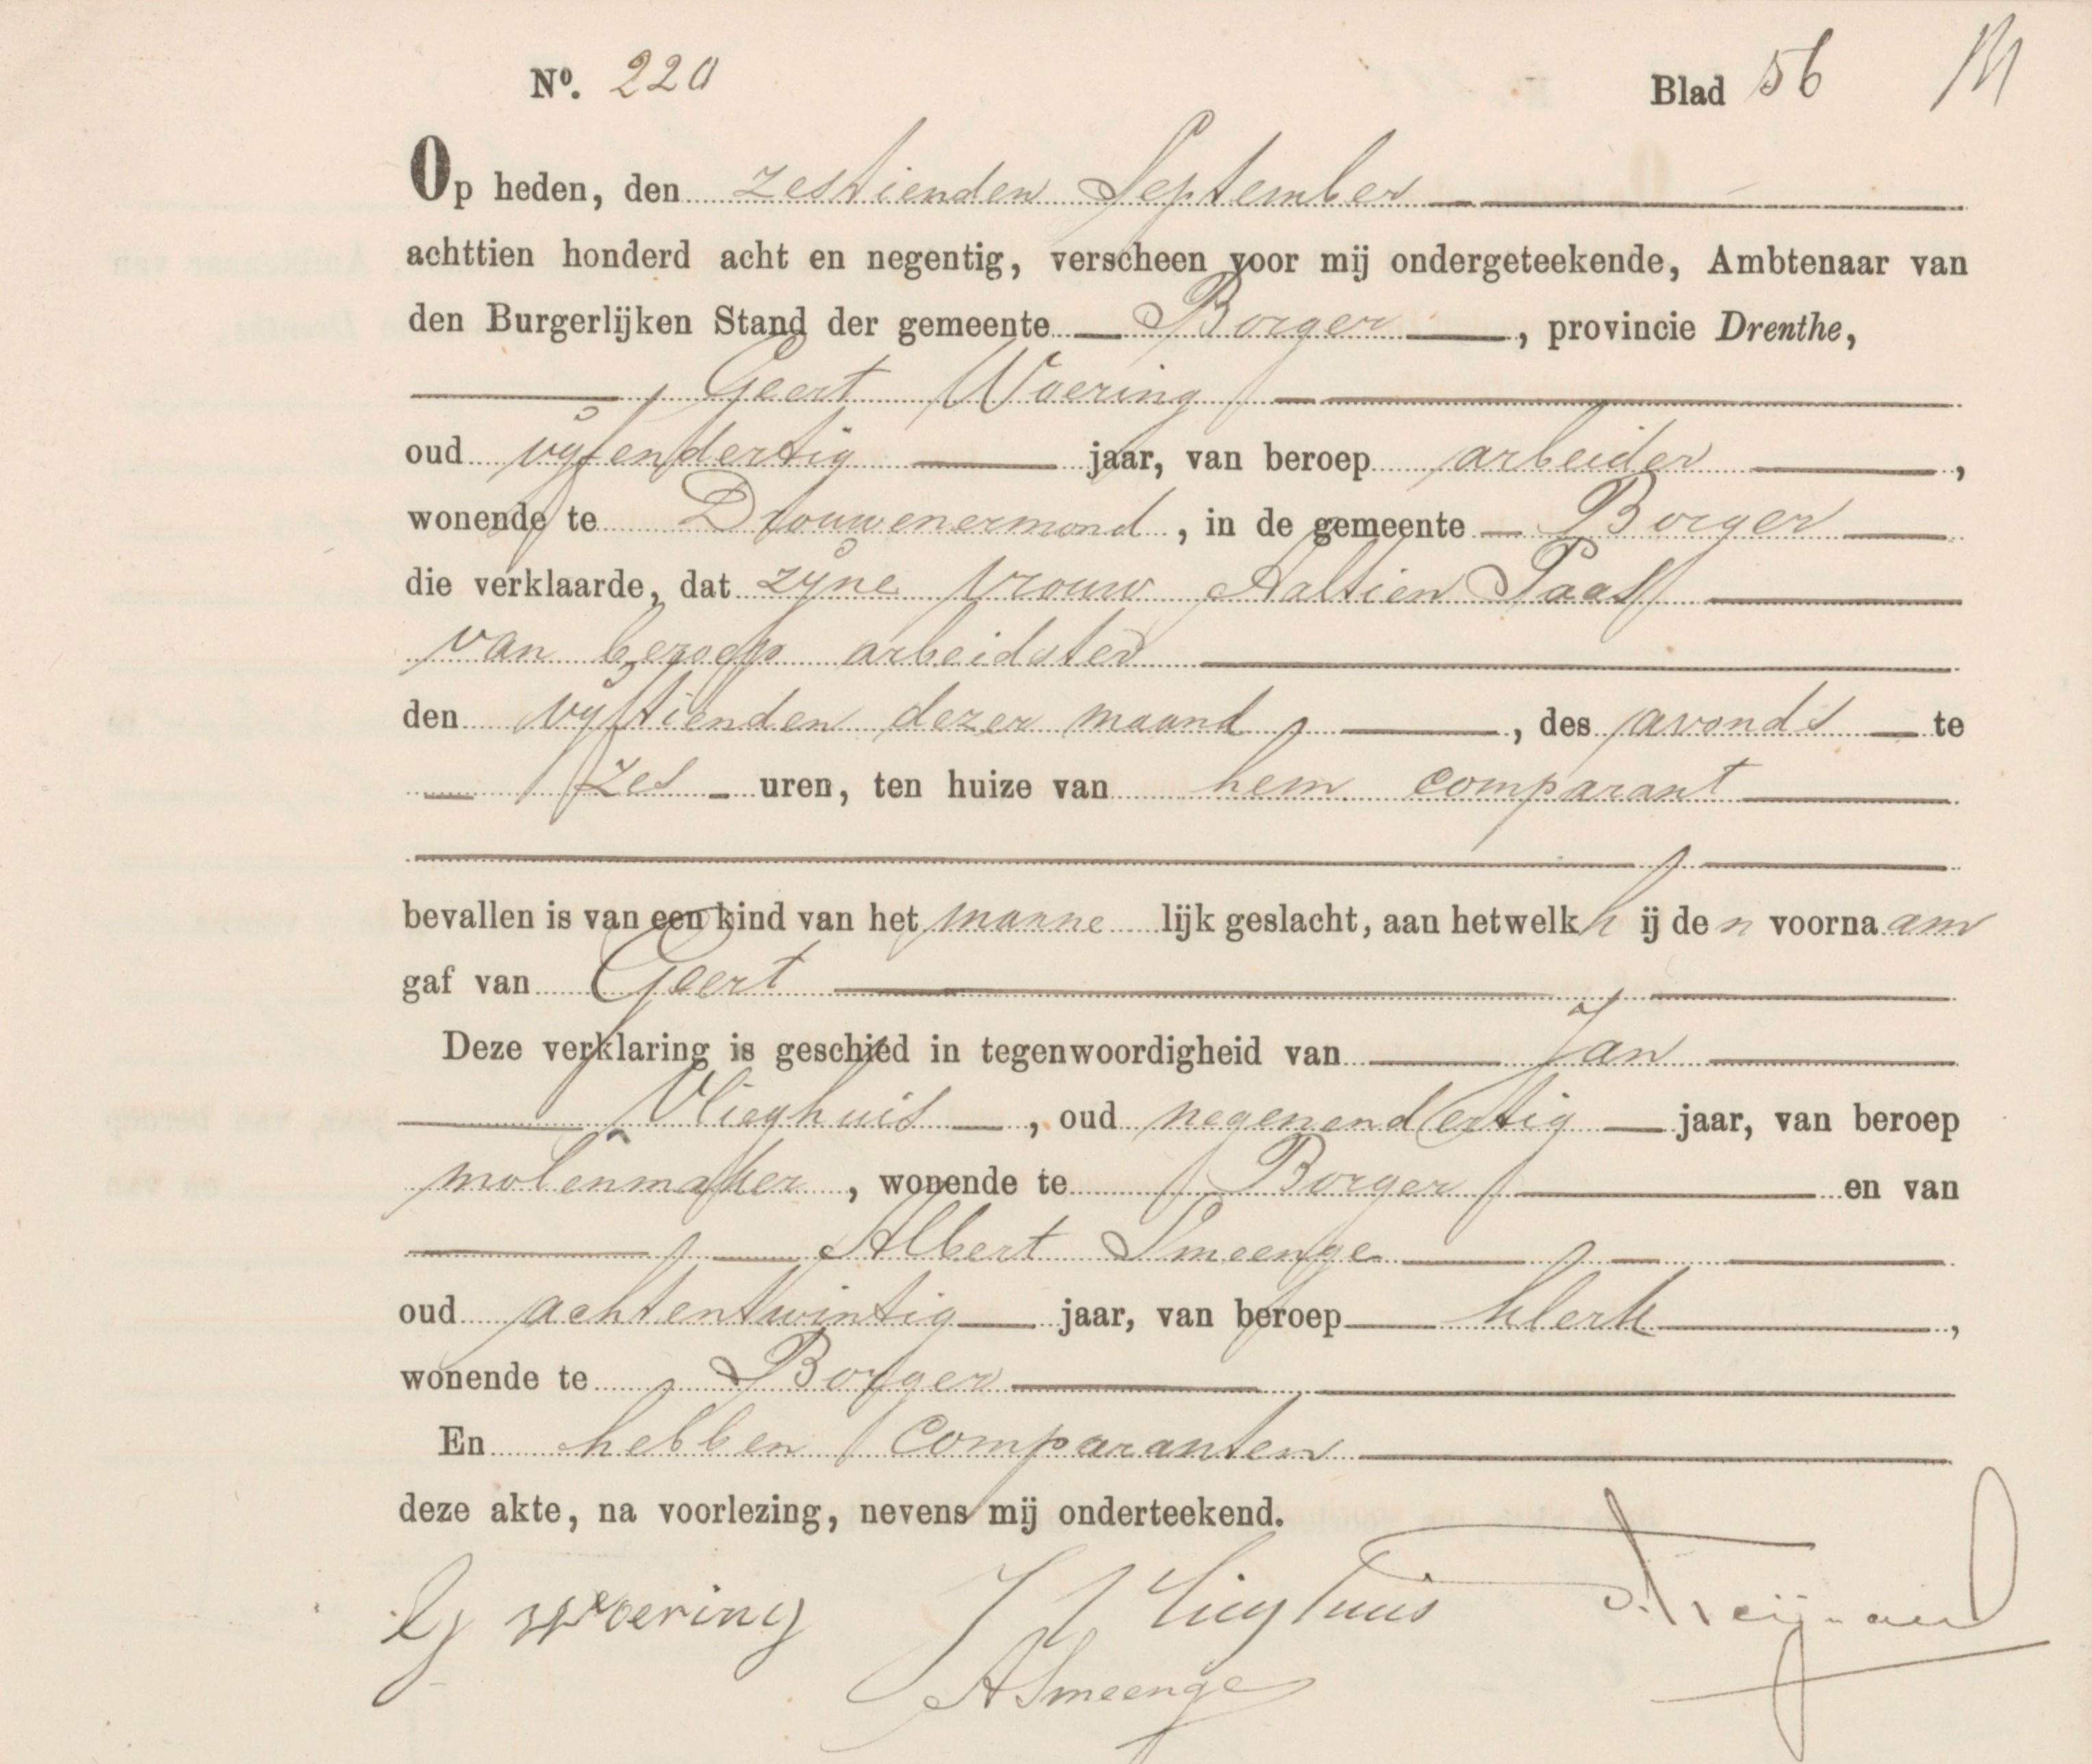 Nº. 220 Blad 56 M
Op heden, den zestienden September
achttien honderd acht en negentig, verscheen voor mij ondergeteekende, Ambtenaar van
den Burgerlijken Stand der gemeente Borger, provincie Drenthe,
Geert Woering
oud vijfendertig jaar, van beroep arbeider,
wonende te Drouwenermond, in de gemeente Borger
die verklaarde, dat zijne vrouw Aaltien Paas
van beroep arbeidster
den vijftienden dezer maand, des avonds te
zes uren, ten huize van hem comparant
bevallen is van een kind van het mannelijk geslacht, aan hetwelk hij den voornaam
gaf van Geert
Deze verklaring is geschied in tegenwoordigheid van Jan
Vlieghuis, oud negenendertig jaar, van beroep
molenmaker, wonende te Borger en van
Albert Smeenge
oud achtentwintig jaar, van beroep klerk,
wonende te Borger
En hebben comparanten
deze akte, na voorlezing, nevens mij onderteekend.
G Woering J Vlieghuis
A Smeenge